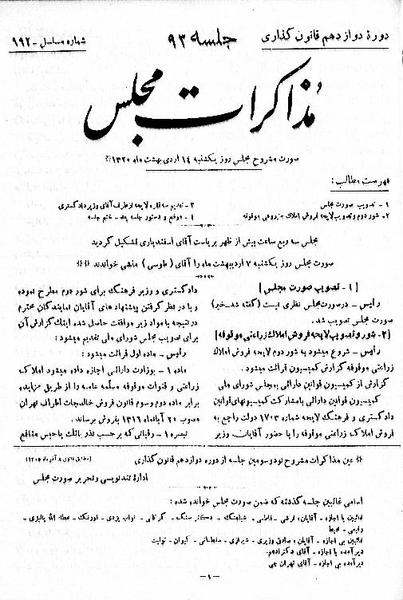 دورهٔ دوازدهم قانون گذاری
جلسه ۹۳
شماره مسلسل - ۱۹۲
مذاکرات مجلس
صورت مشروح مجلس روز یکشنبه ۱۴ اردی بهشت ماه ۱۳۲۰
فهرست مطالب:
۱ - تصویب صورت مجلس
۲ - شور دوم و تصویب لایحه فروش املاک مزروعی موقوفه
۳ - تقدیم لایحه از طرف آقای وزیر دادگستری
۴ - موقع و دستور جلسه بعد - ختم جلسه
مجلس سه ربع ساعت پیش از ظهر بریاست آقای اسفندیاری تشکیل گردید
صورت مجلس روز یکشنبه ۷ اردیبهشت ماه را آقای (طوسی) منشی خواندند
[ ۱ - تصویب صورت مجلس ]
رئیس - در صورت مجلس نظری نیست (گفته شد - خیر)
صورت مجلس تصویب شد.
[۲ - شور و تصویب لایحه فروش املاک زراعتی موقوفه]
رئیس - شروع میشود به شور دوم لایحه فروش املاک
زراعتی موقوفه گزارش کمیسیون قرائت میشود.
گزارش از کمیسیون قوانین دارائی به مجلس شورای ملی
کمیسیون قوانین دارائی با مشارکت کمیسیونهای قوانین
دادگستری و فرهنگ لایحه شماره ۱۷۰۳ دولت راجع به
فروش املاک زراعتی موقوفه را با حضور آقایان وزیر
دادگستری و وزیر فرهنگ برای شور دوم مطرح نموده
و با در نظر گرفتن پیشنهاد های آقایان نمایندگان محترم
در نتیجه با مواد زیر موافقت حاصل شده اینک گزارش آن
برای تصویب مجلس شورای ملی تقدیم میشود:
رئیس - ماده اول قرائت میشود:
ماده ۱ - بوزارت دارائی اجازه داده میشود املاک
زراعتی و قنوات موقوفه عامه را از طریق مزایده
برابر ماده دوم و سوم قانون فروش خالصجات اطراف تهران
مصوب ۲۰ آبانماه ۱۳۱۶ بفروش برساند.
تبصره ۱ - رقباتی که بر حسب نذر یا حبس منافع
عین مذاکرات مشروح نود و سومین جلسه از دوره دوازدهم قانون گذاری
اداره تند نویسی و تحریر صورت مجلس
اسامی غائبین جلسه گذشته که ضمن صورت مجلس خوانده شده:
غائبین با اجازه - آقایان:
غائبین بی اجازه - آقایان:
دیر آمده با اجازه - آقای دکتر ادهم.
دیر آمده بی اجازه - آقای تهران چی
- ۱ -